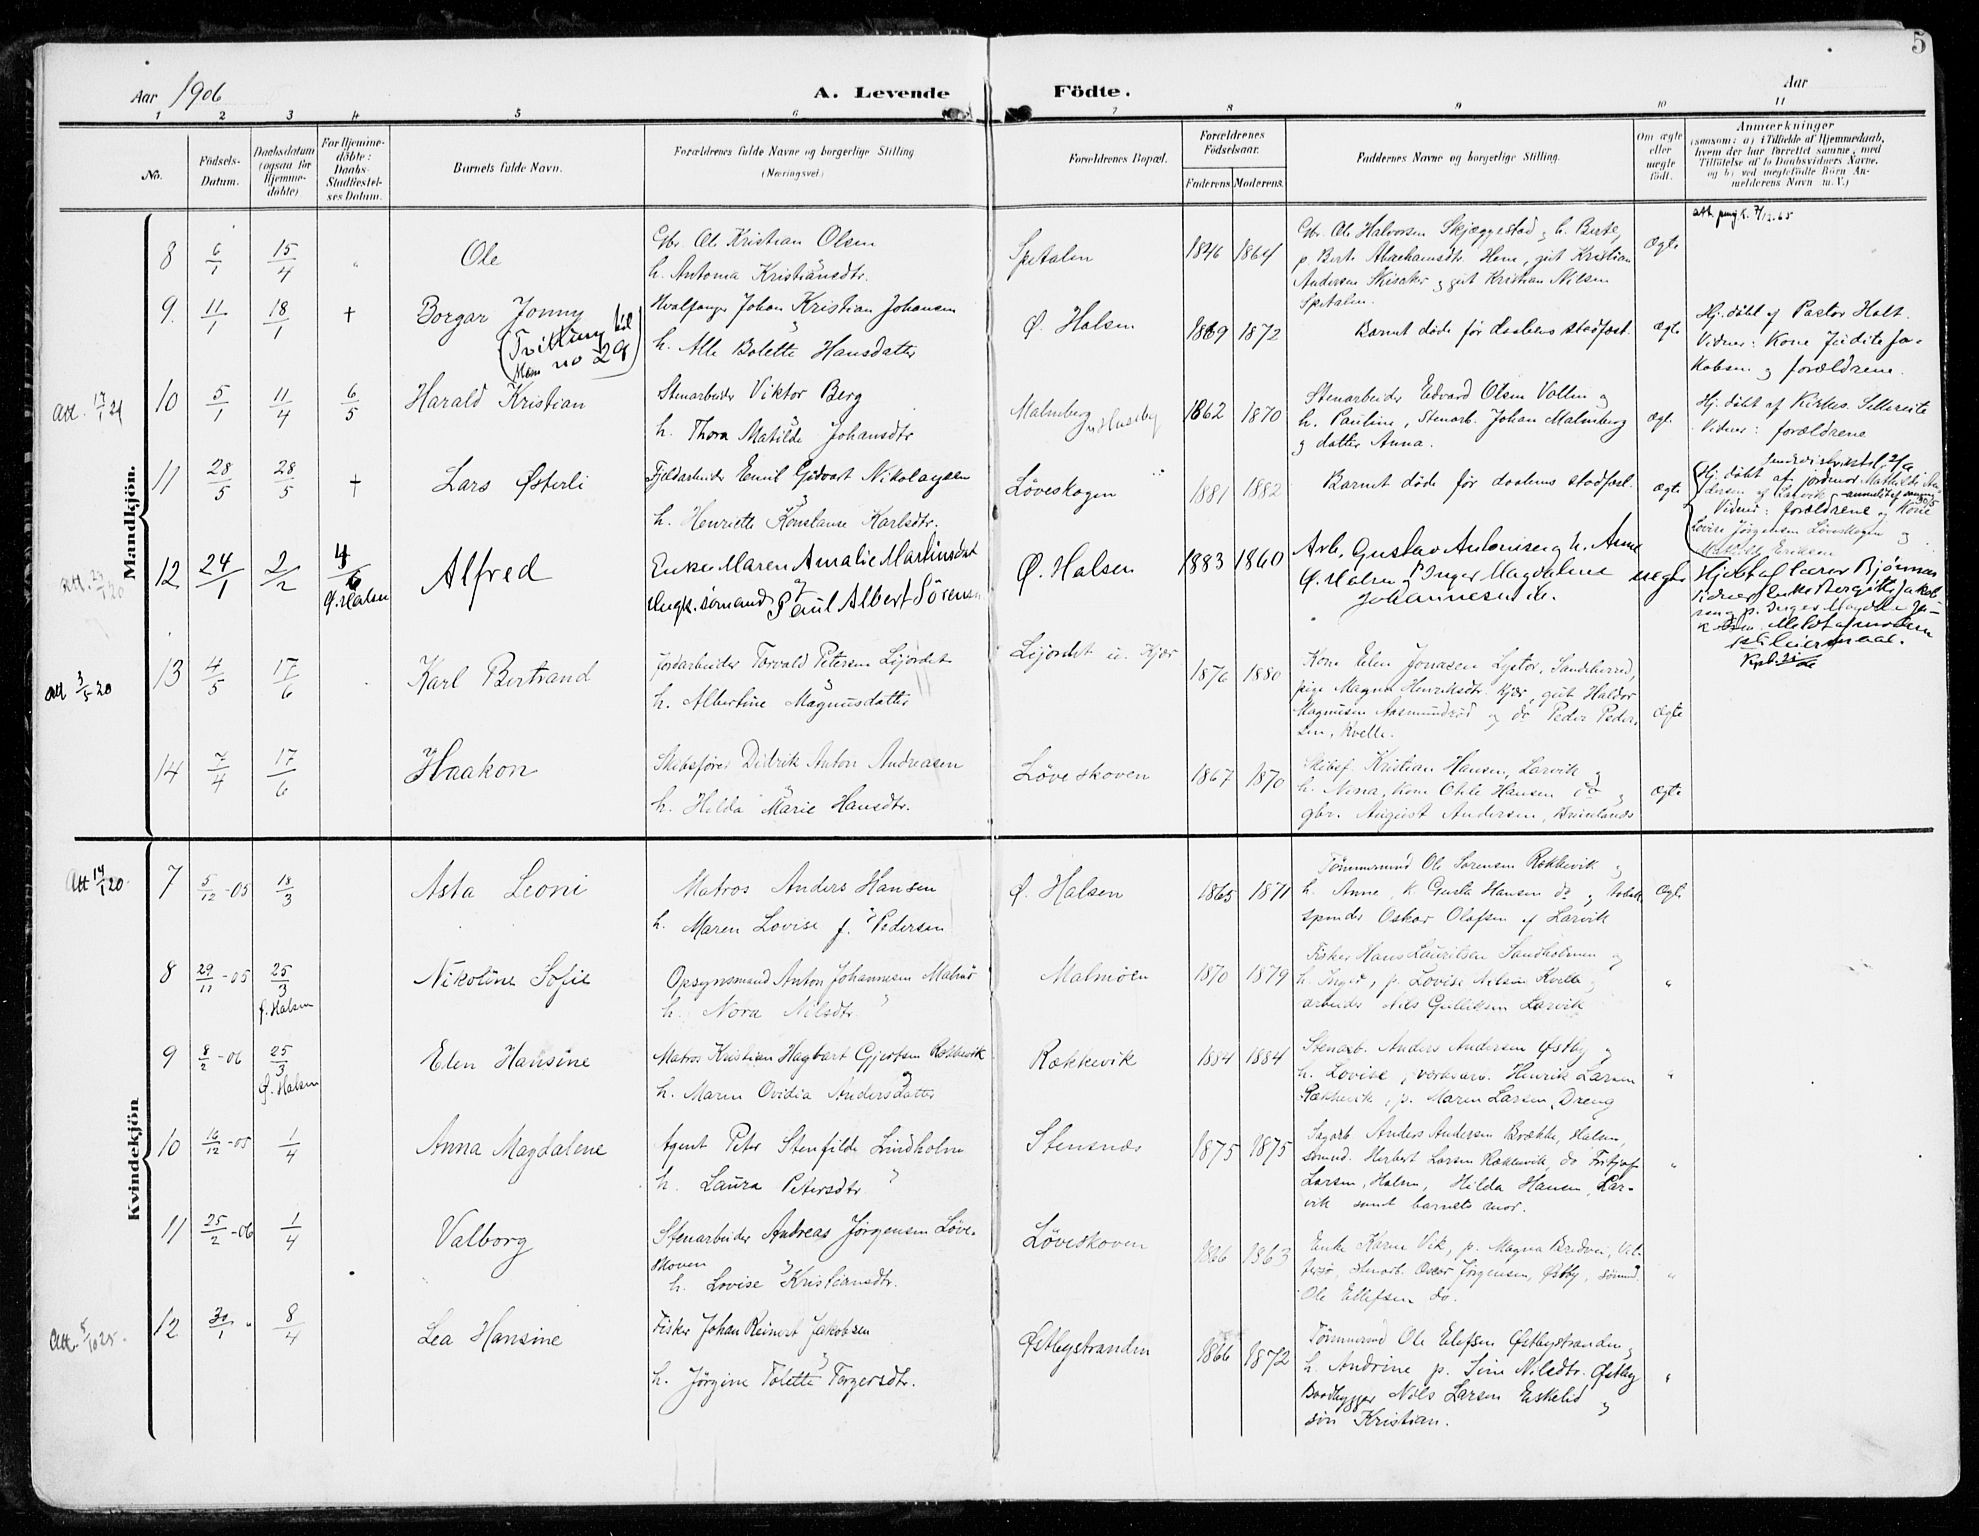 5
Aar 1906
A. Levende Födte.
Aar
1 2 3 4 5 6 7 8 9 10 11
No.
Födsels-Datum.
Daabsdatum (ogsaa for Hjemmedöbte)
For Hjemmedöbte: Daabs-Stadfæstelses Datum.
Barnets fulde Navn.
Forældrenes fulde Navne og borgerlige Stilling (Næringsvei)
Forældrenes Bopæl.
Forældrenes Födselsaar.
Faderens Moderens
Faddernes Navne og borgerlige Stilling.
Om ægte eller uægte födt.
Anmærkninger
(saasom: a) i Tilfælde af Hjemmedaab, hvem der har forrettet samme, med Tilföielse af to Daabsvidners Navne, og b) ved uægtefödte Börn Anmelderens Navn m. V.)
Mandkjön.
8 6/1 15/4 " Ole
Gbr. Ole Kristian Olsen
h. Antoma Kristiansdtr.
Spetalen 1846 1864
Gbr. Ole Halvorsen Skjæggestad og h. Berte,
p. Berte Abrahamsdtr. Hem, gut Kristian
Andersen Skisaker og gut Kristian Nilsen
Spetalen.
Ægte
9. 11/1 18/1 + Borgar Jonny
(Tvilling til no 29)
Hvalfanger Johan Kristian Johansen
h. Alle Bolette Hansdatter
Ø. Halsen 1869 1872
Barnet døde før daabens stadfæst.
Ægte
Hj. døbt af Pastor Holt.
Vidner: Kone Judite Ja-
kobsen og forældrene.
Att. 17/1 21
10 5/1 11/4 6/5 Harald Kristian
Stenarbeider Viktor Berg
h. Thora Matilde Johansdtr
Malmberg 1862 1870
Stenarbeider Edvard Olsen Vallin og
h. Pauline, Stenarb. Johan Malmberg
og datter Anna.
Ægte
Hj. døbt af Kirkes.
Vidner: forældrene
11 28/5 28/5 + Lars Østerli
Fjeldarbeider Emil Gidvart Nikolaysen
h. Henriette Konstanse Karlsdtr.
Löveskogen 1881 1882
Barnet døde før daabens stadfæst.
Ægte
Hj. døbt af jordmor Mathilde An-
dersen af Larvik
Vidner: forældrene og Kone
Lovise Jørgensen Löveskogen og
Eriksen
12 24/1 2/2 4/6 Ø. Halsen Alfred
Enke Maren Amalie Martinsdat
Ungk. sømand Paul Albert Sørensen
Ø. Halsen 1883 1860
Arb. Gustav Antonisen og h. Anne
Ø. Halsen p. Inger Magdalene
Johannesen do.
uegte
Hjdøbt af Lærer Bjørnnes
Meldt af moderen
1ste Leiermaal.
Att 3/5 20
13 4/5 17/6 Karl Bertrand
Jordarbeider Torvald Petersen Lijordet
h. Albertine Magnusdatter
Lijordet u. Kjær 1876 1880
Kone Elen Jonasen Lystor, Sandeherred,
pige Magna Henriksdtr. Kjær, gut Haldor
Magnusen Aasmundrød og do Peder Peder-
sen, Kvelle.
Ægte
14 7/4 17/6 Haakon
Skibsfører Didrik Anton Andreasen
h. Hilda Marie Hansdtr.
Löveskoven 1867 1870
Skibsf. Kristian Hansen, Larvik og
h. Nina, Kone Otile Hansen do og
gbr. August Andersen, Brunlanes
Ægte
Kvindekjön
Att 14/1 20
7 5/12-05 18/3 Asta Leoni
Matros Anders Hansen
h. Maren Lovise f. Pedersen
Ø. Halsen 1865 1871
Tömmermd Ole Sorensen Rækkevik og
h. Anne, k Gusta Hansen do og tobak
spinder Oskar Olafsen af Larvik
Ægte
8 29/11-05 25/3 Ø. Halsen Nikoline Sofie
Opsynsmand Anton Johannesen Malmö
h. Nora Nilsdtr.
Malmöen 1870 1879
Fisker Hans Lauritsen Sandholmen og
h. Inger, p. Lovise Nilsen Kvelle og
arbeider Nils Gulliksen Larvik
"
9 8/2-06 25/3 Ø. Halsen Elen Hansine
Matros Kristian Hagbart Gjertsen Rækkevik
h. Maren Ovidia Andersdatter
Rækkevik 1884 1884
Stenarb. Anders Andersen Østby og
h. Lovise, verksarb. Henrik Larsen
Rækkevik, p. Maren Larsen, Dreng
"
10 16/12-05 1/4 Anna Magdalene
Agent Peter Stenfilde Lindholm
h. Laura Petersdtr
Stensnæs 1875 1875
Sagarb. Anders Andersen Brække, Halsen,
sömnd. Herbert Larsen Rækkevik, do Fritjof
Larsen, Halsen, Hilda Hansen, Lar-
vik samt barnets mor.
"
11 25/2-06 1/4 Valborg
Stenarbeider Andreas Jørgensen Löve-
skoven
h. Lovise Kristiansdtr.
Löveskoven 1866 1863
Enke Karen Vik, p. Magna
stenarb. Oscar Jørgensen, Østby, sömnd.
Ole Ellefsen do.
"
Att. 5/10 25
12 30/1 " 8/4 Lea Hansine
Fisker Johan Reinert Jakobsen
h. Jörgine Tolette Torgersdtr.
Østbystranden 1866 1872
Tömmermd Ole Elefsen Østbystranden og
h. Andrine p. Sine Nilsdtr. Østby
Baadbygger Nils Larsen Eskelid og
søn Kristian.
"